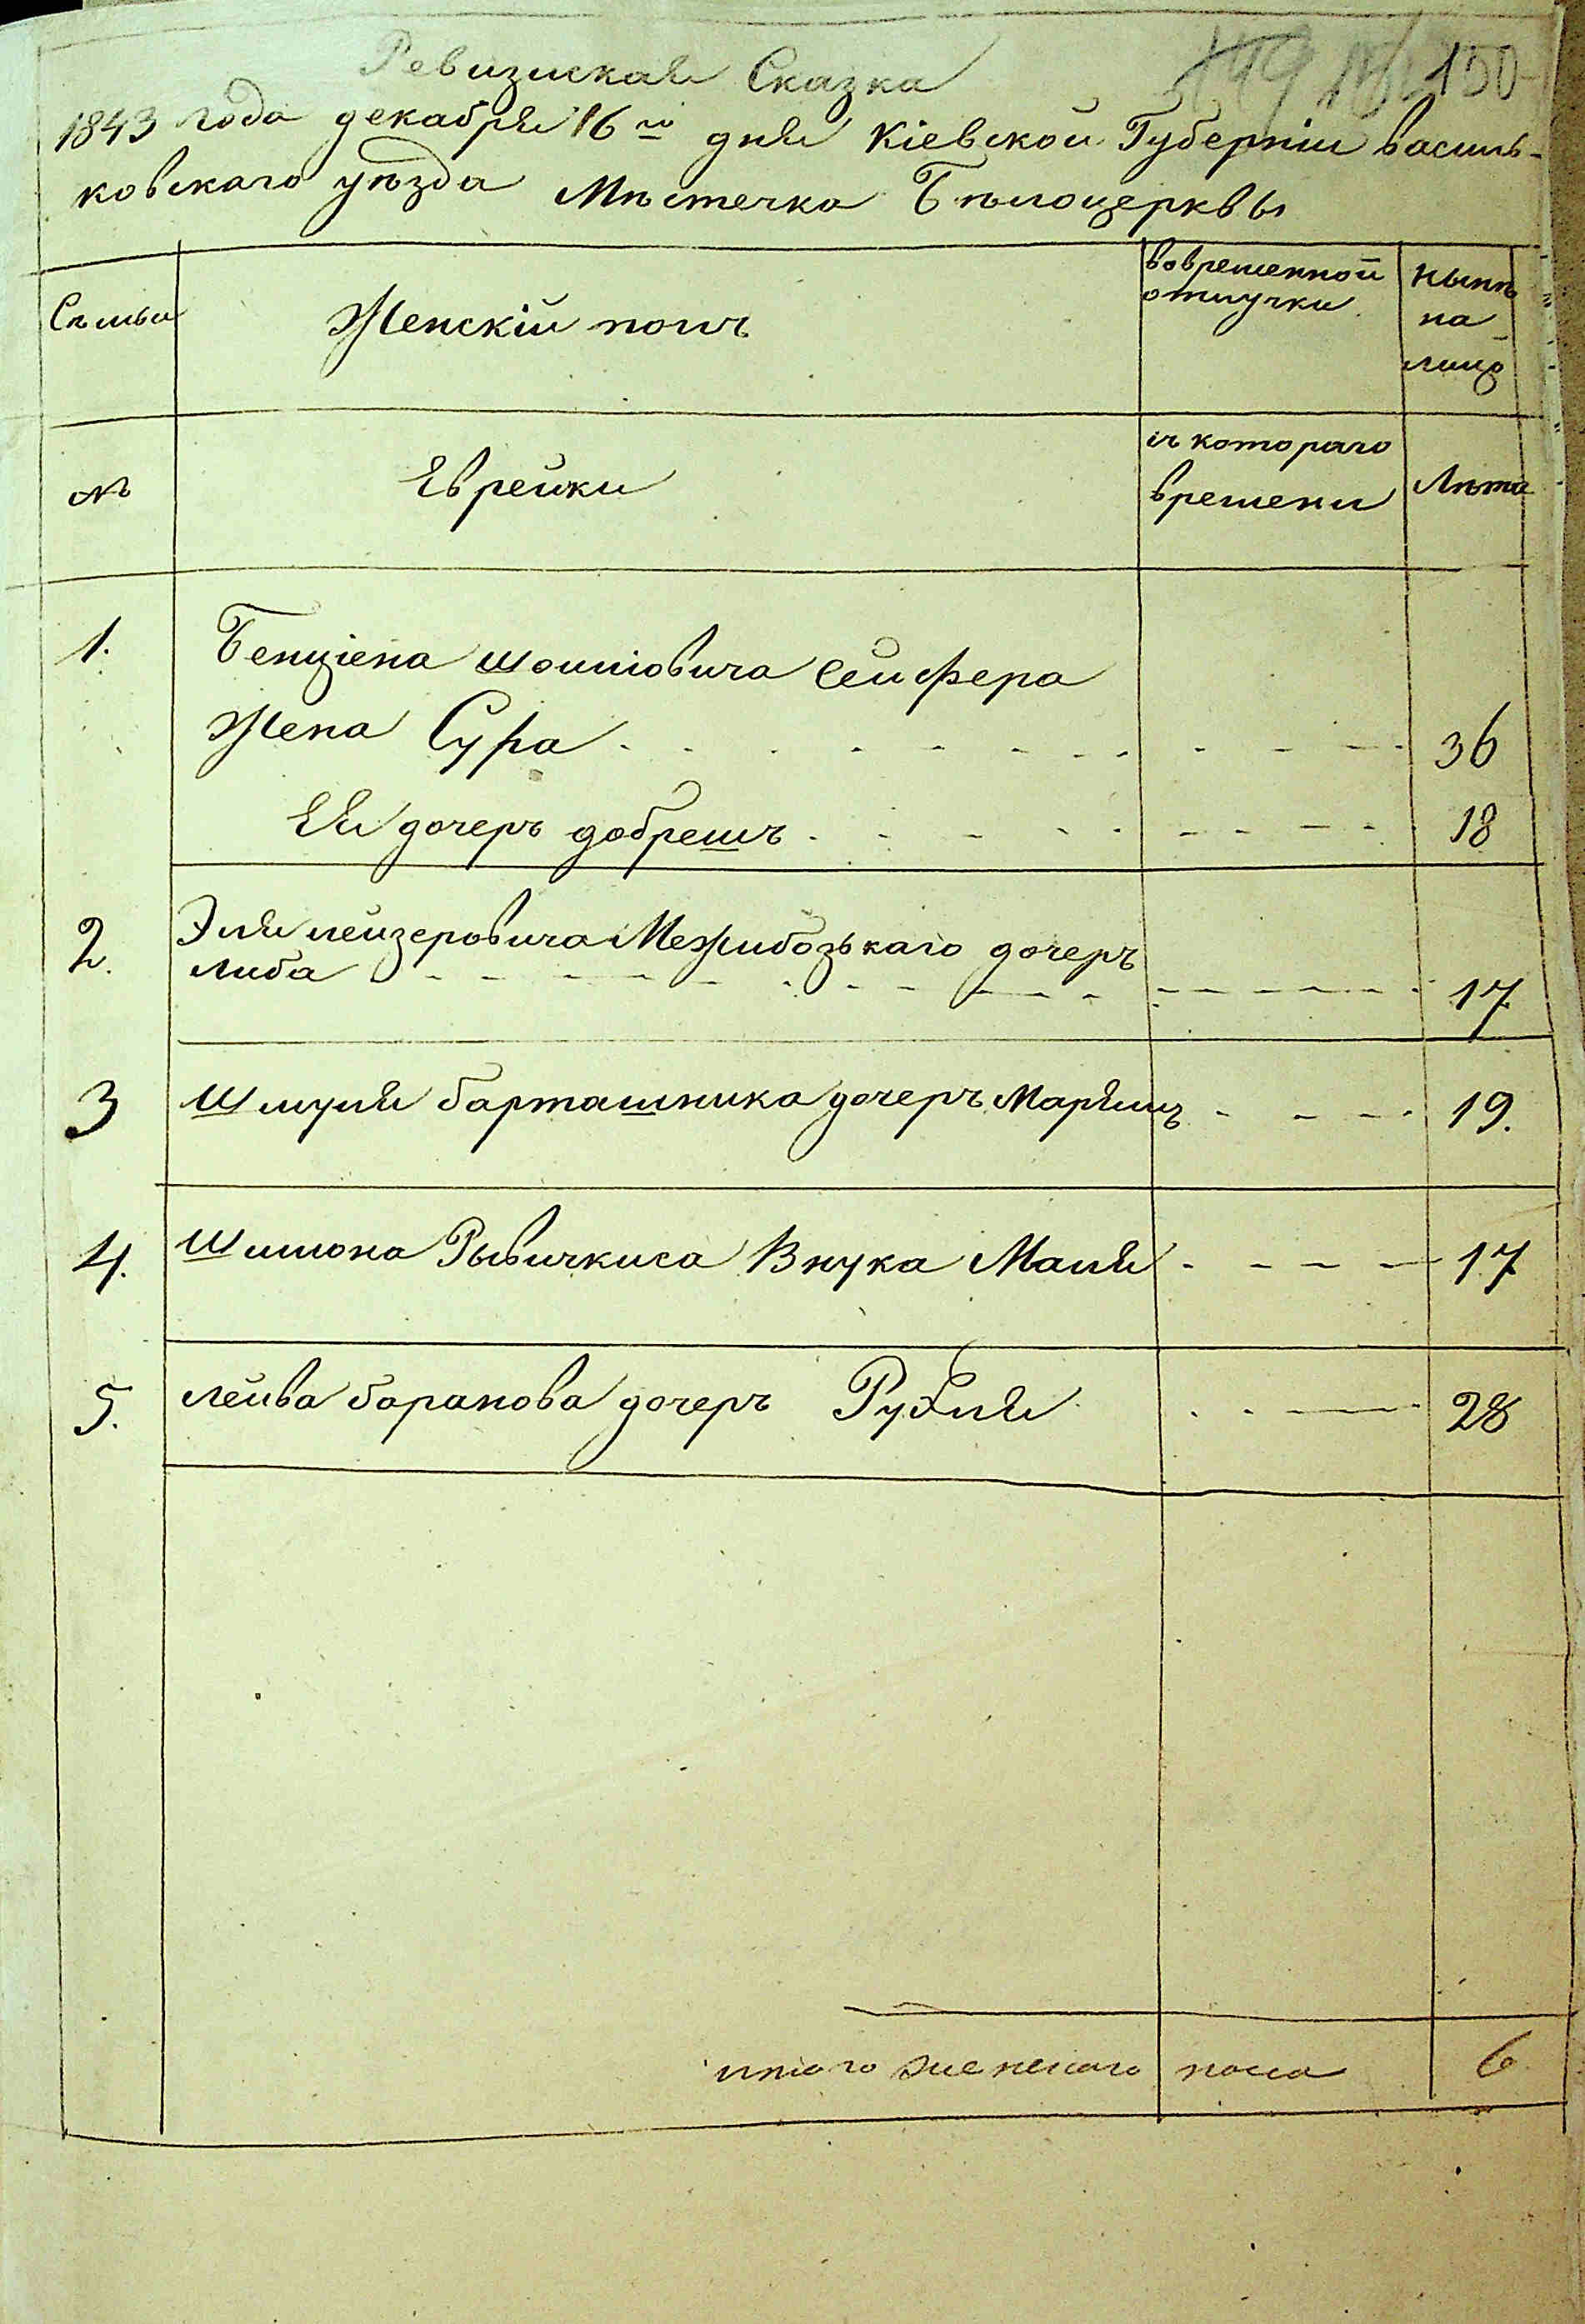 150
Ревизиская Сказка
1843 года декабря 16го дня Кіевской Губерніи василь-
ковскаго уѣзда Мѣстечка Бѣлоцерквы
Семьи
Женскій полъ
вовременной
отлучки
Нынѣ
на
лицо
№
Еврейки
съ котораго
времени
Лѣта
1. Бенціена Сейфера
Жена Сура 36
Ея дочеръ добрешъ 18
2. Эля лейзеровича Межибозькаго дочеръ
либа 17
3 Шмуля барташника дочеръ Маріямъ 19.
4. Шимона Внука Маля 17
5. лейба баранова дочеръ Рухля 28
итого женскаго пола 6